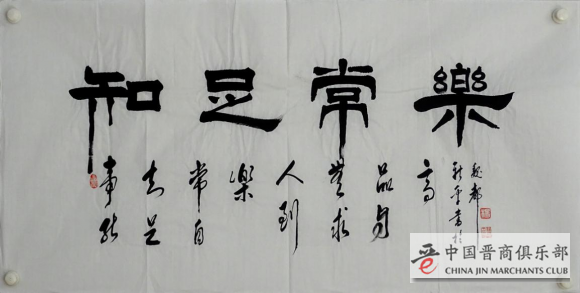 知足常樂
事能
知足
常自
樂
人到
無求
品自
高
中国晋商俱乐部
CHINA JIN MARCHANTS CLUB